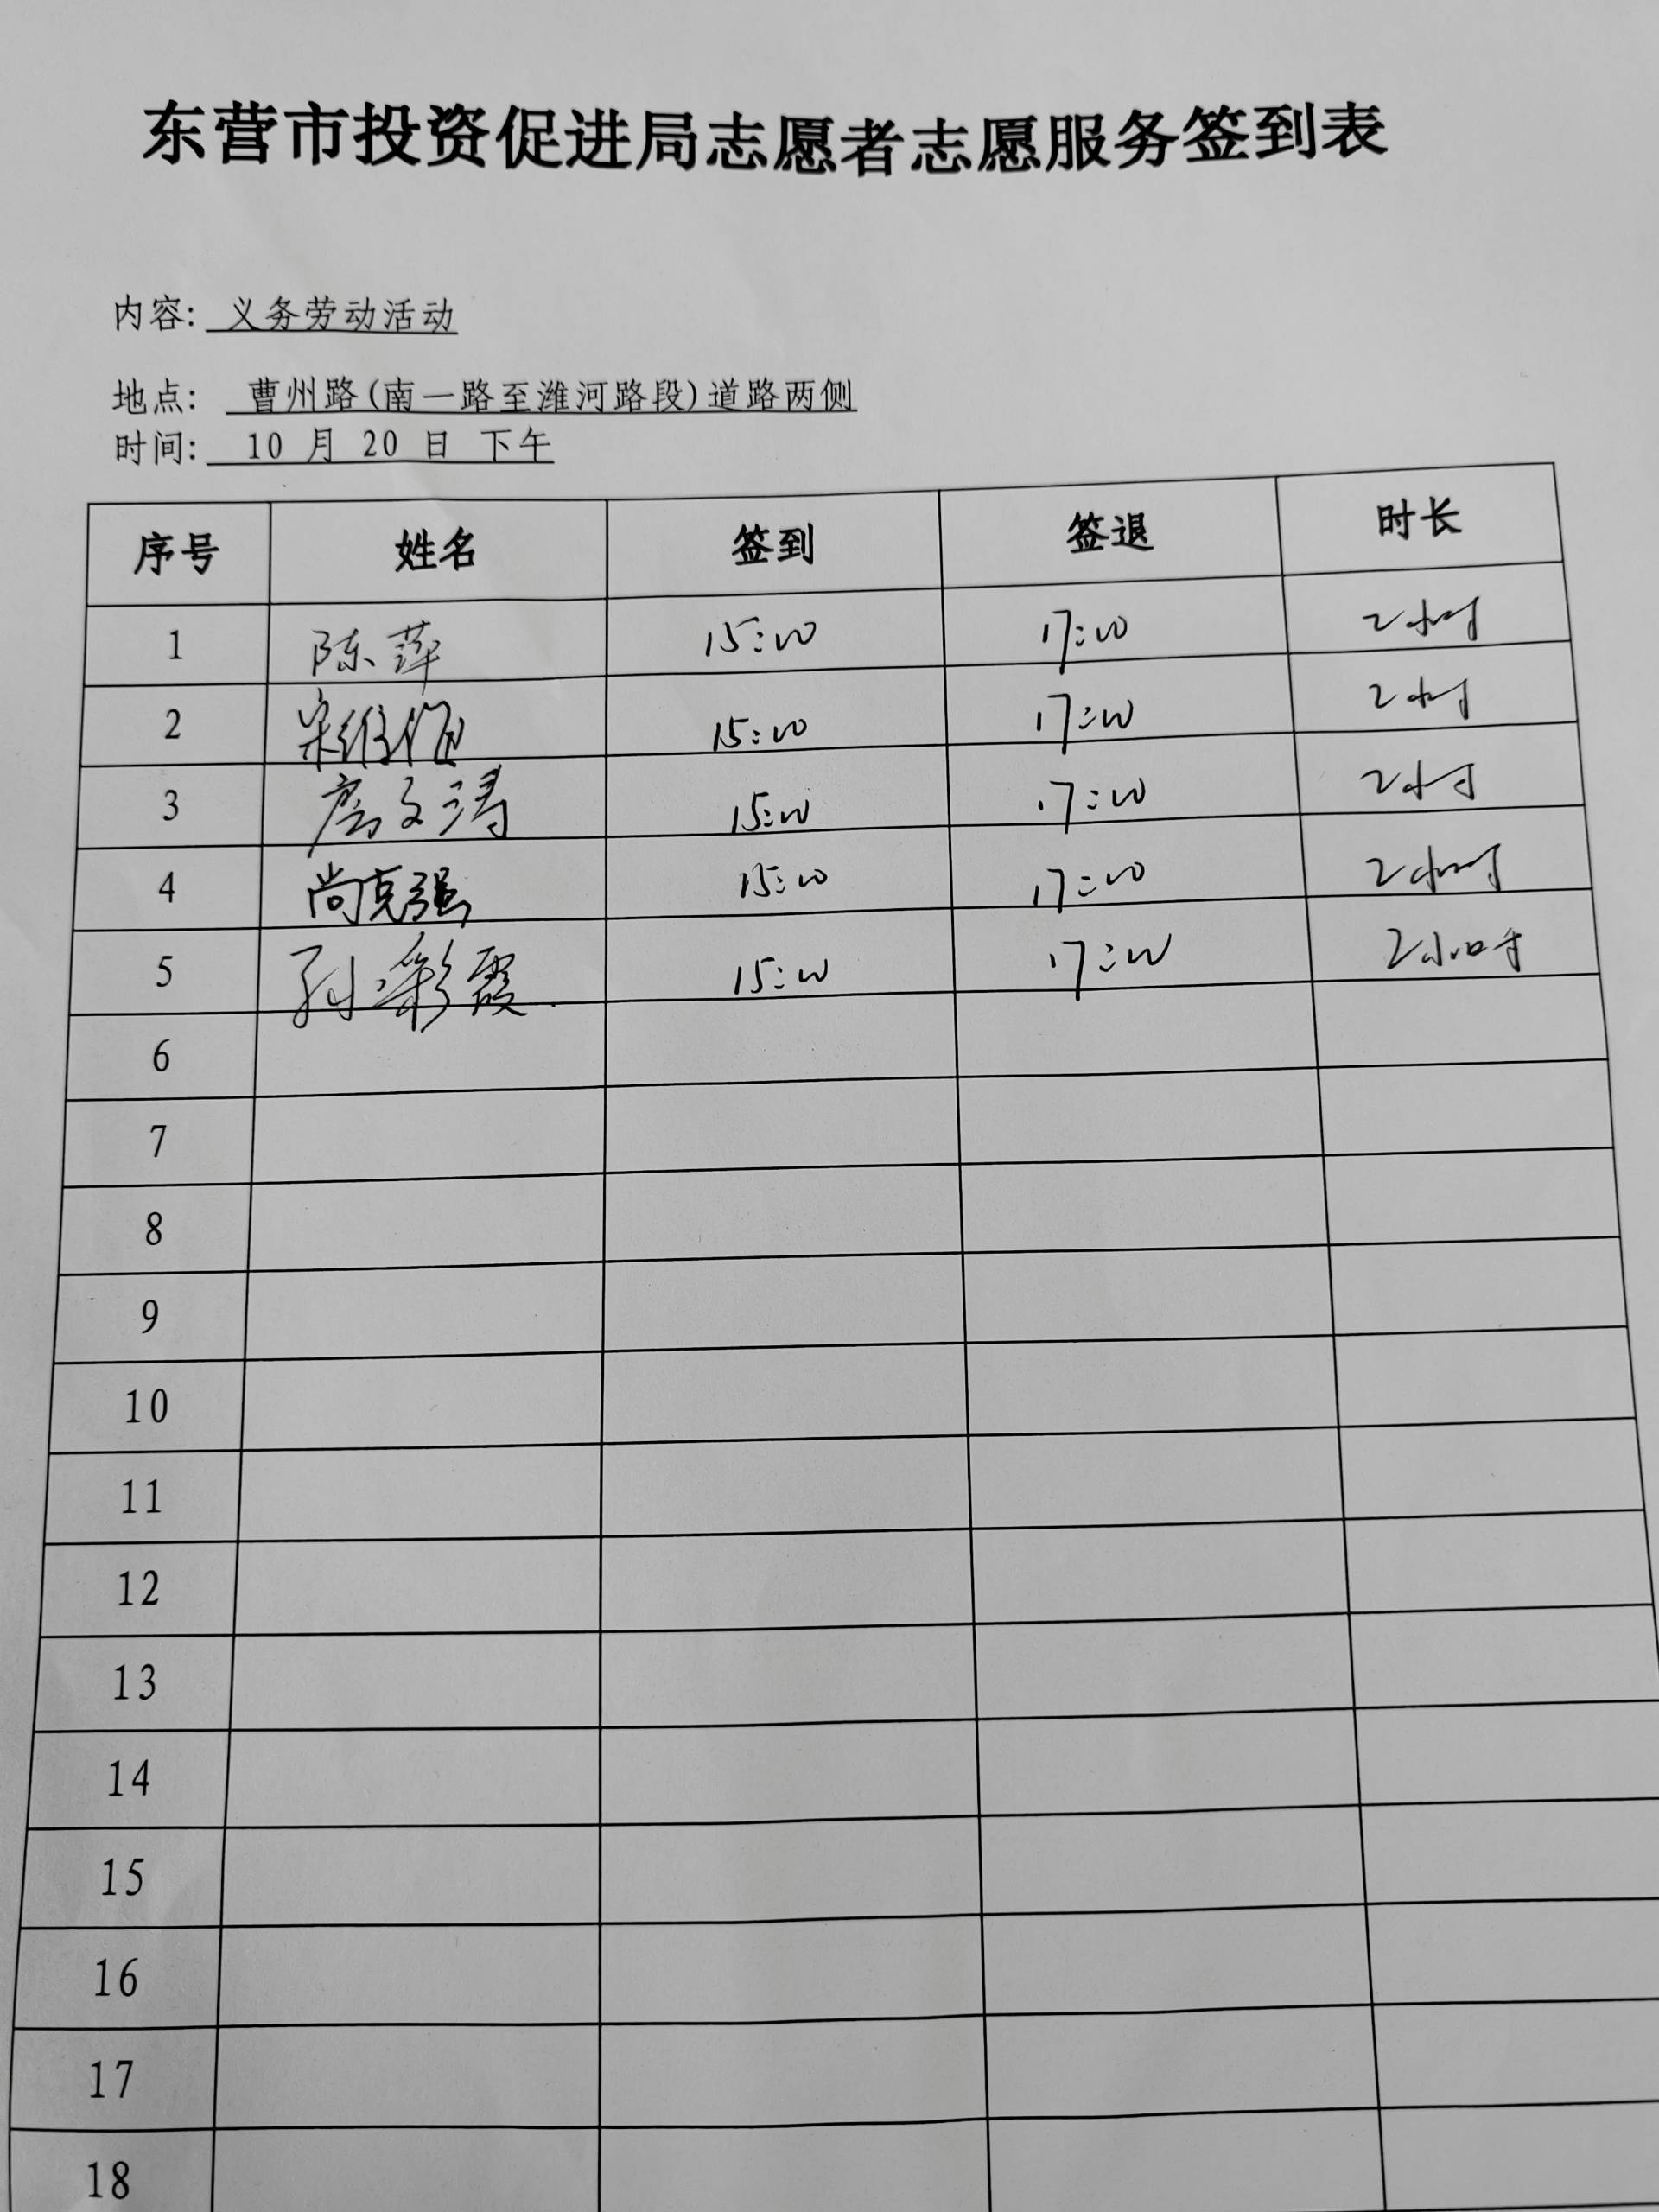 东营市投资促进局志愿者志愿服务签到表
内容: 义务劳动活动
地点: 曹州路(南一路至潍河路段)道路两侧
时间: 10 月 20 日 下午
序号 姓名 签到 签退 时长
1 陈萍 15:00 17:00 2小时
2 宋维 15:00 17:00 2小时
3 文涛 15:00 17:00 2小时
4 尚克强 15:00 17:00 2小时
5 孙彩霞 15:00 17:00 2小时
6
7
8
9
10
11
12
13
14
15
16
17
18